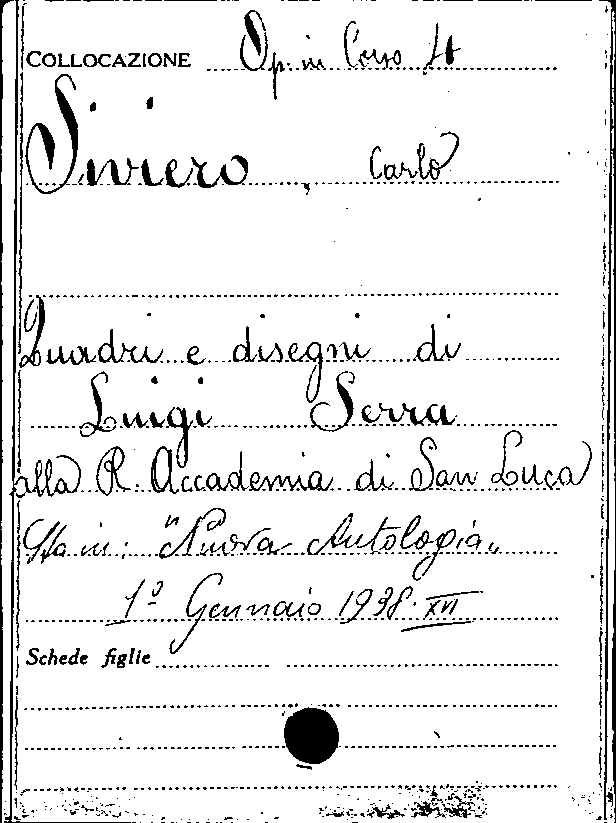 COLLOCAZIONE Op. in Corso 4
Siviero, Carlo
Quadri e disegni di
Luigi Serra
alla R. Accademia di San Luca
Sta in: "Nuova Antologia"
1º Gennaio 1938. XVI
Schede figlie